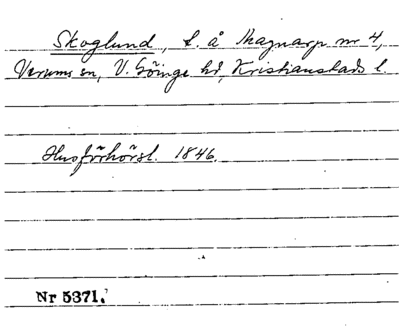 Skoglund, t. å Magnarp nr 4,
Verums sn, V. Göinge hd, Kristianstads l.
Husförhörsl. 1846.
Nr 5371.